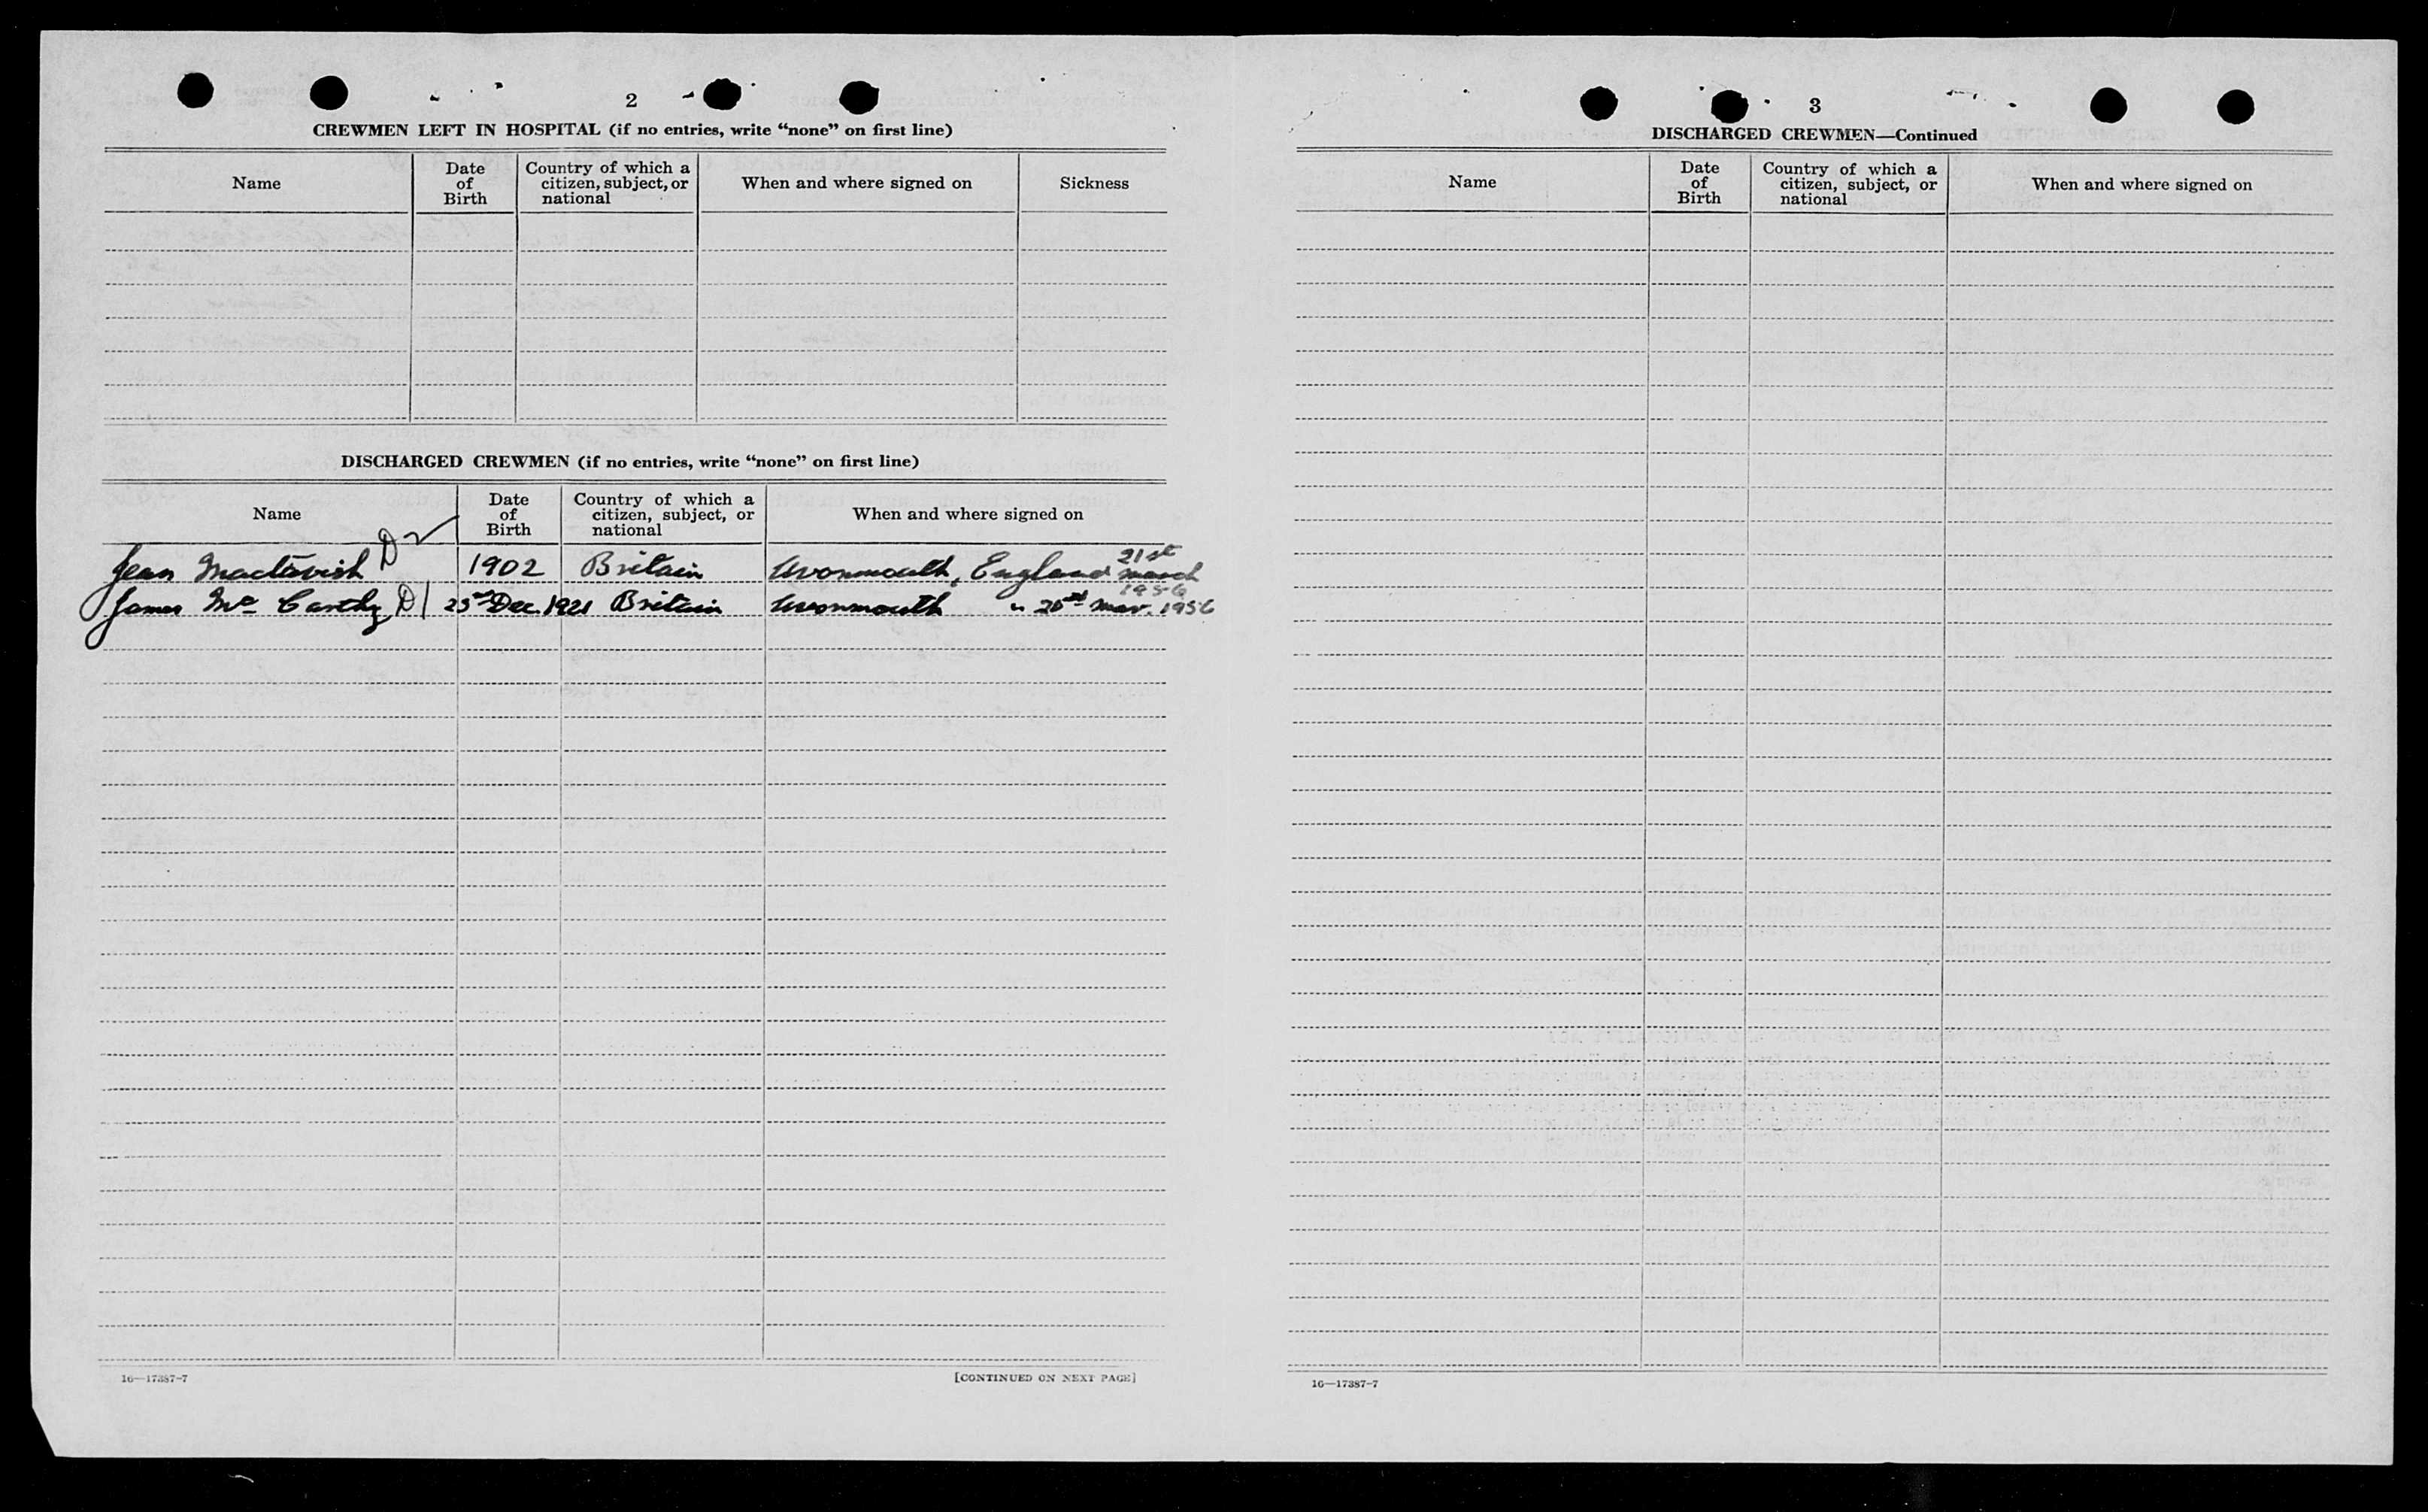 2
CREWMEN LEFT IN HOSPITAL (if no entries, write “none” on first line)
Name
Date of Birth
Country of which a citizen, subject, or national
When and where signed on
Sickness
DISCHARGED CREWMEN (if no entries, write “none” on first line)
Name
Date of Birth
Country of which a citizen, subject, or national
When and where signed on
Jean Mactavish D 1902 Britain Avonmouth, England 21st March 1956
James Mc Carthy D1 Dec. 1921 Britain Avonmouth " Mar. 1956
16—17387-7
[CONTINUED ON NEXT PAGE]
3
DISCHARGED CREWMEN—Continued
Name
Date of Birth
Country of which a citizen, subject, or national
When and where signed on
16—17387-7